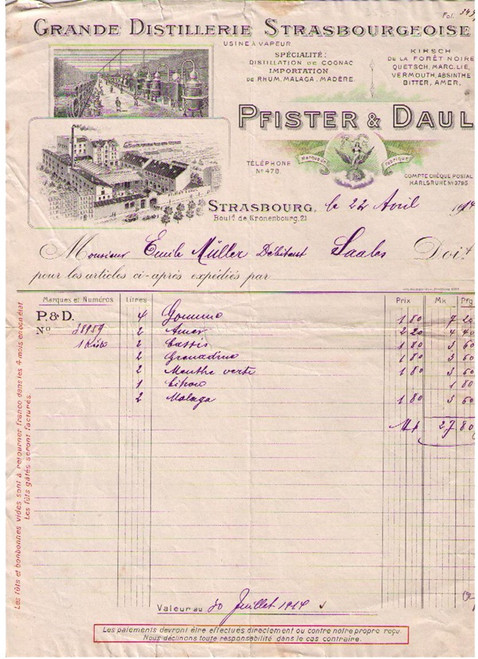 Fol.
GRANDE DISTILLERIE STRASBOURGEOISE
USINE À VAPEUR
SPÉCIALITÉ:
DISTILLATION DE COGNAC
IMPORTATION
DE RHUM, MALAGA, MADÈRE
KIRSCH
DE LA FORÊT NOIRE
QUETSCH, MARC, LIE,
VERMOUTH, ABSINTHE
BITTER, AMER.
PFISTER & DAUL
TÉLÉPHONE
No 470
COMPTE CHÈQUE POSTAL
KARLSRUHE No 3795
STRASBOURG, le 24 Avril 1914
Bould. de Kronenbourg, 21
Monsieur Emile Müller Débitant Saales Doit
pour les articles ci-après expédiés par
Marques et Numéros Litres Prix Mk Pfg
P. & D. 4 Gomme 1 80 7 20
No 38959 2 Amer 2 20 4 40
2 Cassis 1 80 3 60
2 Grenadine 3 60
2 Menthe verte 1 80 3 60
1 Citron 1 80
2 Malaga 1 80 3 60
27 80
Les fûts et bonbonnes vides sont à retourner franco dans les 4 mois en bon état
Les fûts gâtés seront facturés.
Valeur au 30 Juillet 1914
Les paiements devront être effectués directement ou contre notre propre reçu.
Nous déclinons toute responsabilité dans le cas contraire.